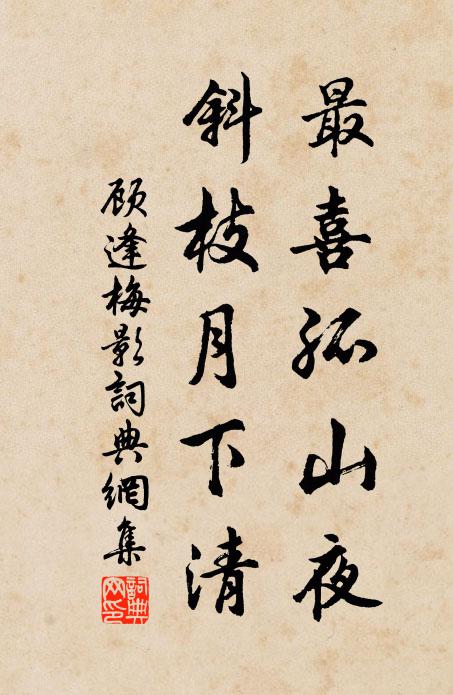 最喜孤山夜
斜枝月下清
顾逢梅影詞典網集
詞典网印